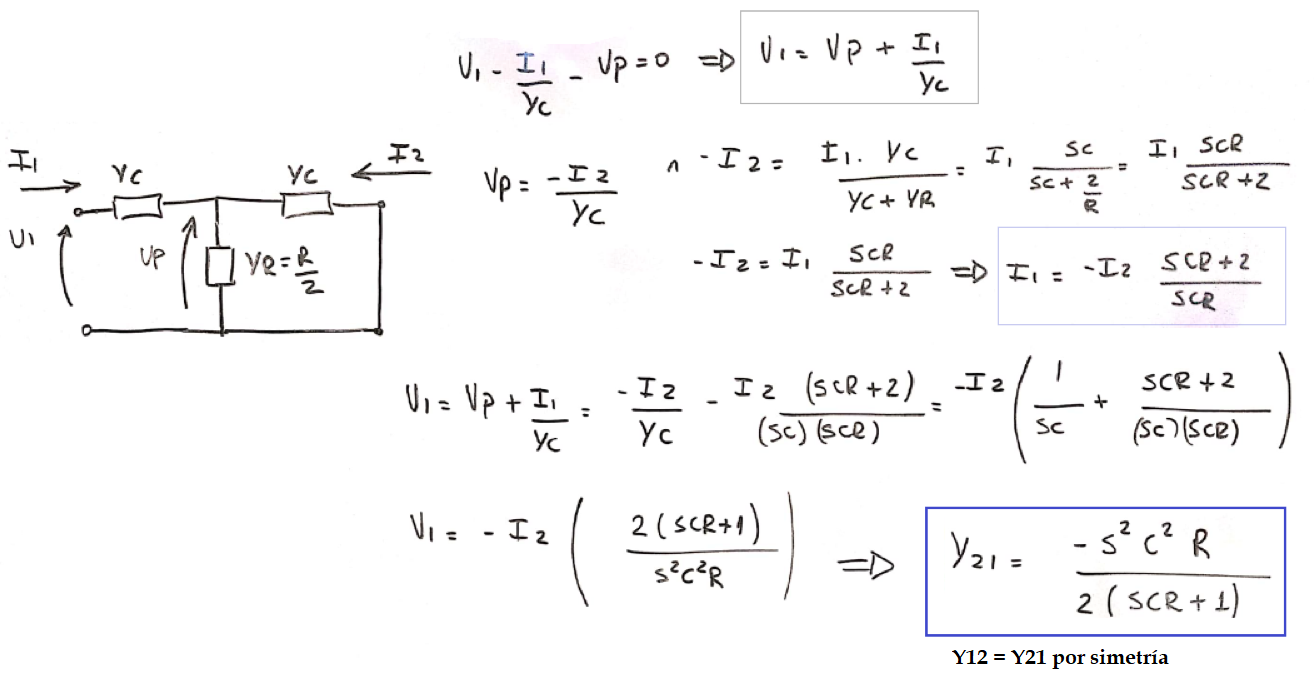 V1 - I1/YC - VP = 0 ⇒ V1 = VP + I1/YC
I1 YC YC I2
V1 VP YR = R/2
VP = -I2/YC ∧ -I2 = I1 . YC/(YC + YR) = I1 SC/(SC + 2/R) = I1 SCR/(SCR + 2)
-I2 = I1 SCR/(SCR + 2) ⇒ I1 = -I2 (SCR + 2)/SCR
V1 = VP + I1/YC = -I2/YC - I2 (SCR + 2)/((SC)(SCR)) = -I2 (1/SC + (SCR + 2)/((SC)(SCR)))
V1 = -I2 (2(SCR+1)/(S²C²R)) ⇒ Y21 = -S²C²R/(2(SCR+1))
Y12 = Y21 por simetría